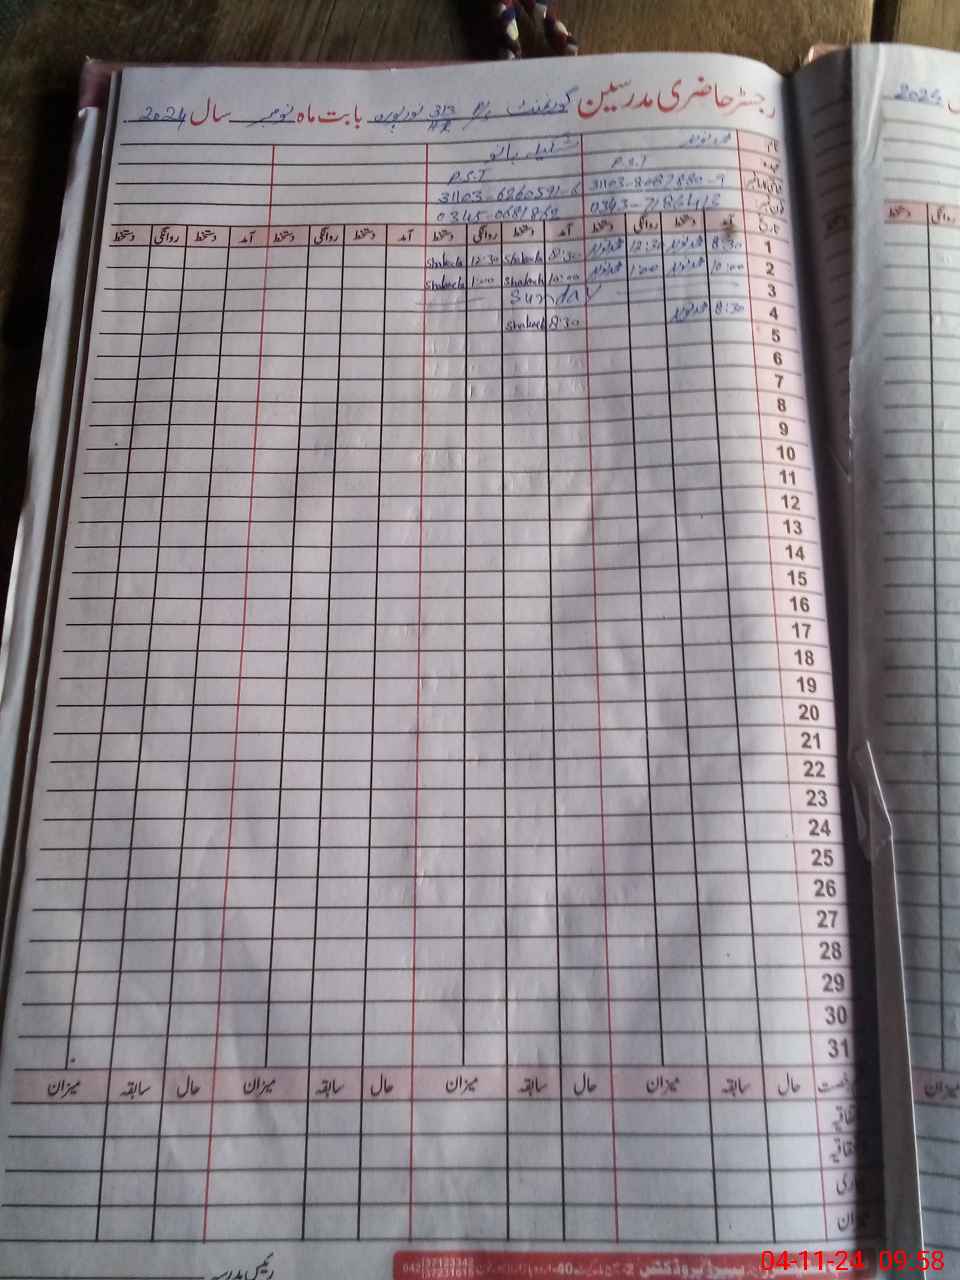 رجسٹر حاضری مدرسین گورنمنٹ پرائمری 313/HR نورپورہ بابت ماہ نومبر سال 2024
2024
نام محمد نوید شکیلہ بانو
عہدہ P.S.T P.S.T
31103-8087880-9 31103-6260591-6
0345-0681862
تاریخ آمد دستخط روانگی دستخط آمد دستخط روانگی دستخط آمد دستخط روانگی دستخط آمد دستخط روانگی دستخط
دستخط روانگی
1 8:30 محمد نوید 12:30 محمد نوید 8:30 Shakeela 12:30 Shakeela
2 10:00 محمد نوید 1:00 محمد نوید 10:00 Shakeela 1:00 Shakeela
3 Sunday
4 8:30 محمد نوید 8:30 Shakeela
5
6
7
8
9
10
11
12
13
14
15
16
17
18
19
20
21
22
23
24
25
26
27
28
29
30
31
حال سابقہ میزان حال سابقہ میزان حال سابقہ میزان حال سابقہ میزان
میزان
رئیس مدرسہ
042 37123342
37231616
04-11-24 09:58